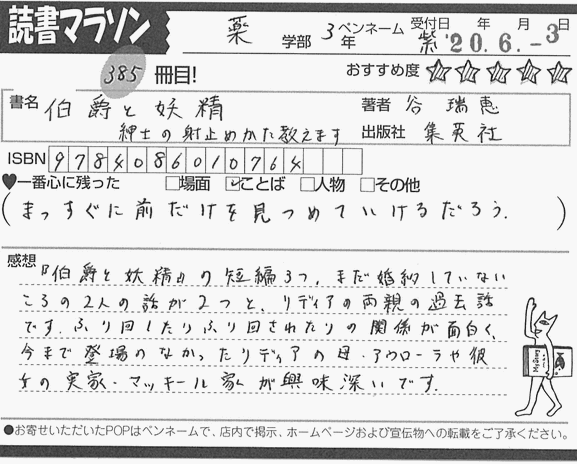 読書マラソン
薬 学部 3年 ペンネーム 紫 受付日 年 月 日
'20.6.-3
385 冊目!
おすすめ度 ☆☆☆☆☆
書名 伯爵と妖精 著者 谷 瑞恵
紳士の射止めかた教えます 出版社 集英社
ISBN 9784086010764
♥一番心に残った □場面 ☑ことば □人物 □その他
(まっすぐに前だけを見つめていけるだろう.)
感想
『伯爵と妖精』の短編3つ, まだ婚約していない
ころの2人の話が2つと、リディアの両親の過去話
です. ふり回したりふり回されたりの関係が面白く、
今まで登場のなかったリディアの母・アウローラや彼
女の実家・マッキール家が興味深いです.
●お寄せいただいたPOPはペンネームで、店内で掲示、ホームページおよび宣伝物への転載をご了承ください。